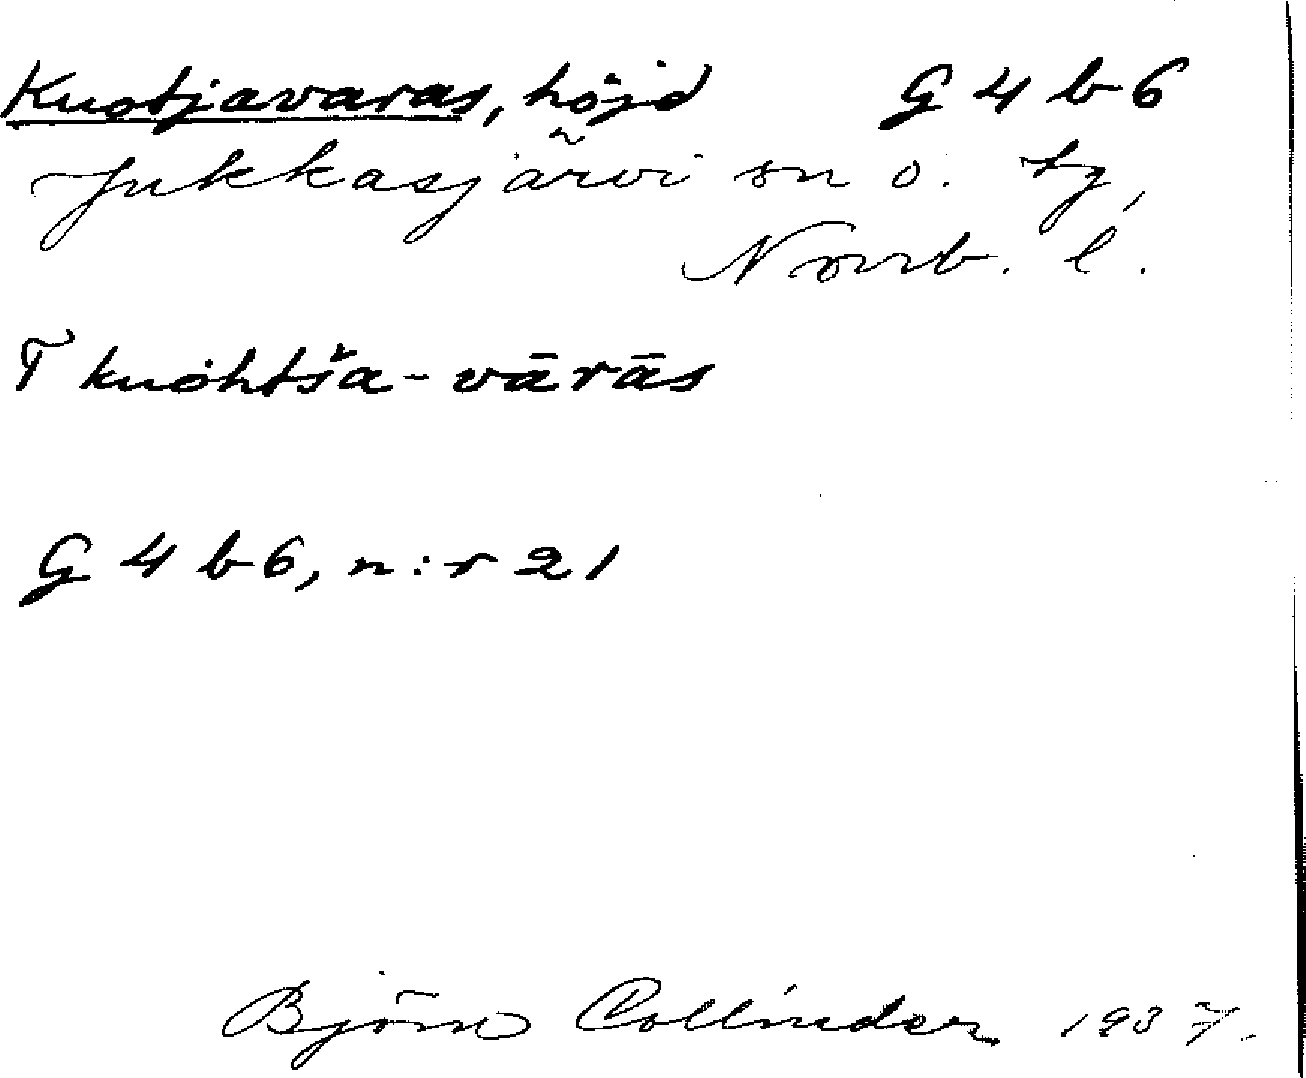 Kuotjavaras, höjd G 4 b 6
Jukkasjärvi sn o. tg,
Norrb. l.
T kuòhtša-vārās
G 4 b 6, n:r 21
Björn Collinder 1937.